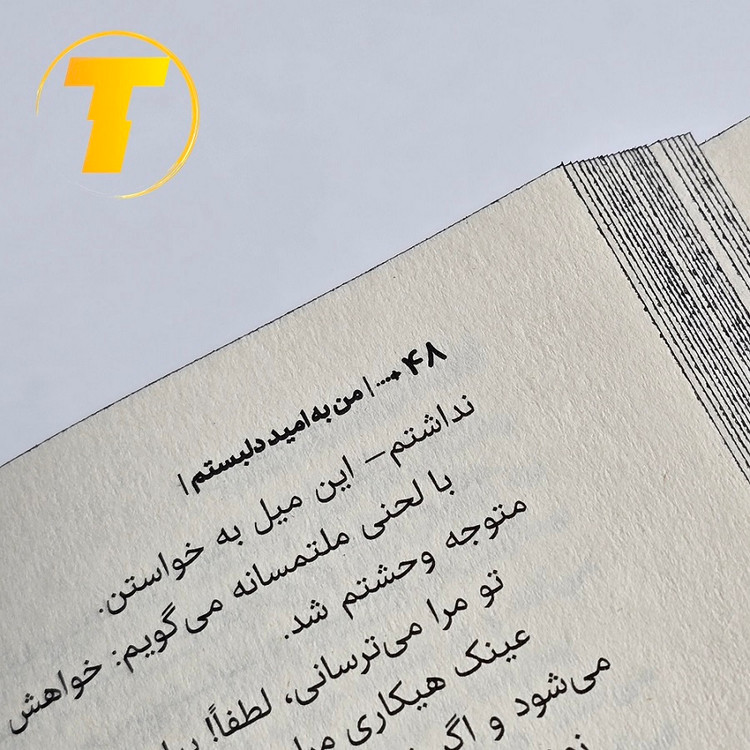 T
۴۸ ... | من به امید دلبستم |
نداشتم– این میل به خواستن.
با لحنی ملتمسانه می‌گویم: خواهش
متوجه وحشتم شد.
تو مرا می‌ترسانی، لطفاً!
عینک هیکاری
می‌شود و اگر